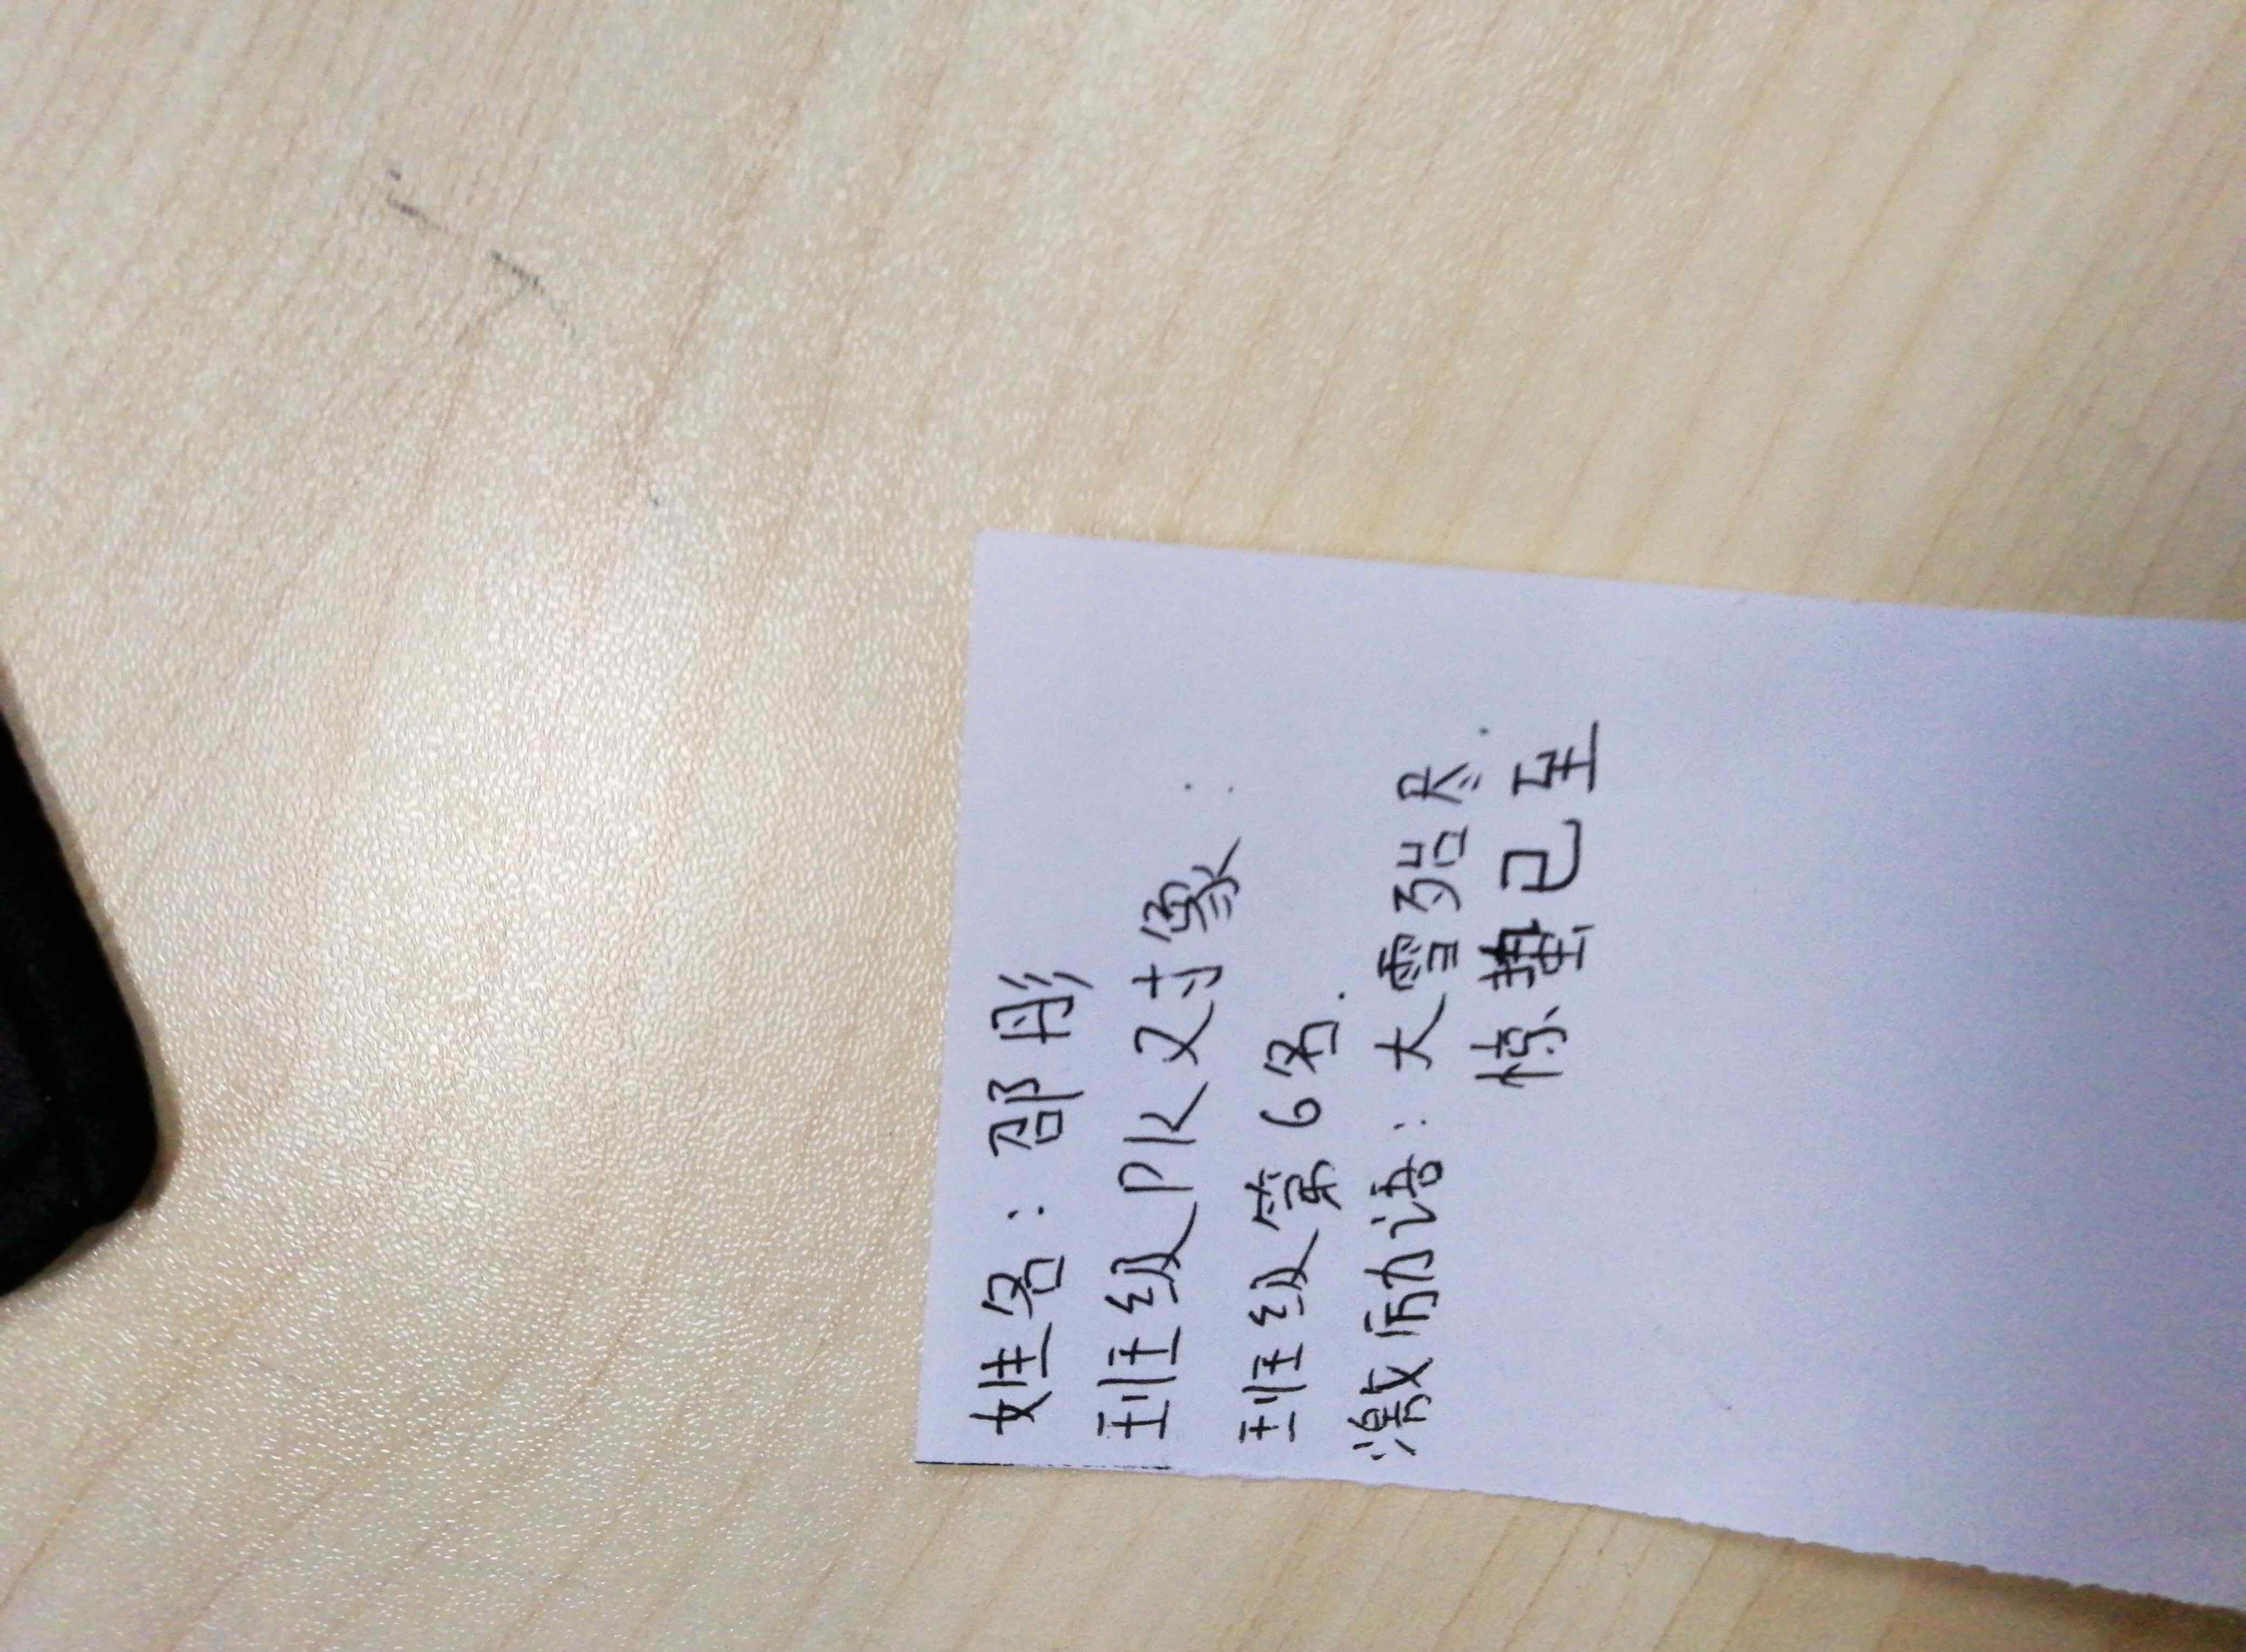 姓名：邵彤
班级PK对象
班级第6名.
激励语：大雪弥尽.
惊蛰已至